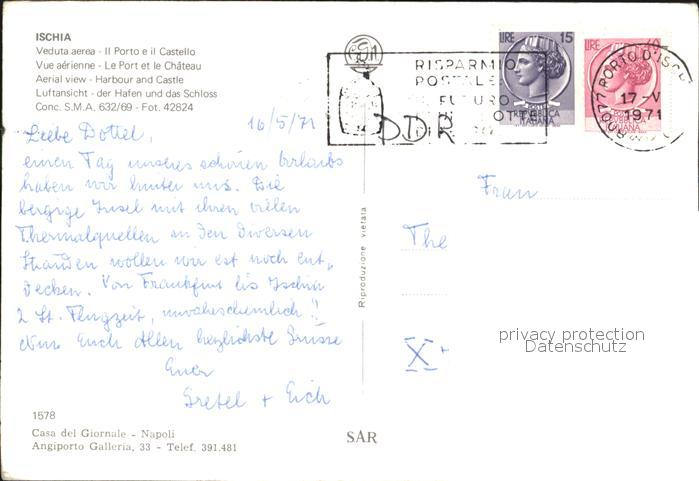 ISCHIA
Veduta aerea - Il Porto e il Castello
Vue aérienne - Le Port et le Château
Aerial view - Harbour and Castle
Luftansicht - der Hafen und das Schloss
Conc. S.M.A. 632/69 - Fot. 42824
16/5/71
Liebe Dottel,
einen Tag unseres schönen Urlaubs
haben wir hinter uns. Die
bergige Insel mit ihren vielen
Thermalquellen an den diversen
Stranden wollen wir erst noch ent„
decken. Von Frankfurt bis Ischia
2 St. Flugzeit, unwahrscheinlich!!
Euch Allen herzlichste Grüsse
Euer
Gretel + Erich
1578
Casa del Giornale - Napoli
Angiporto Galleria, 33 - Telef. 391.481
SAR
Riproduzione vietata
RISPARMIO
POSTALE
FUTURO
DDR
LIRE 15
REPUBBLICA
ITALIANA
LIRE 40
ITALIANA
PORTO D'ISCHIA
17-V
1971
Frau
The
X
privacy protection
Datenschutz